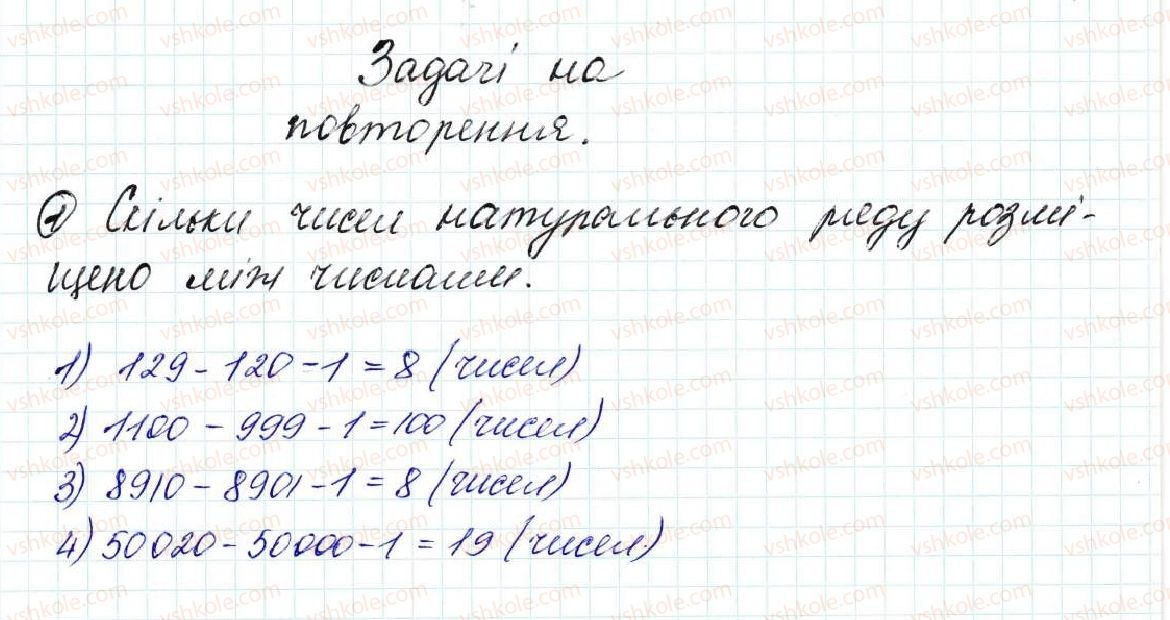 Задачі на
повторення.
1 Скільки чисел натурального ряду розмі-
щено між числами.
1) 129 - 120 - 1 = 8 (чисел)
2) 1100 - 999 - 1 = 100 (чисел)
3) 8910 - 8901 - 1 = 8 (чисел)
4) 50020 - 50000 - 1 = 19 (чисел)